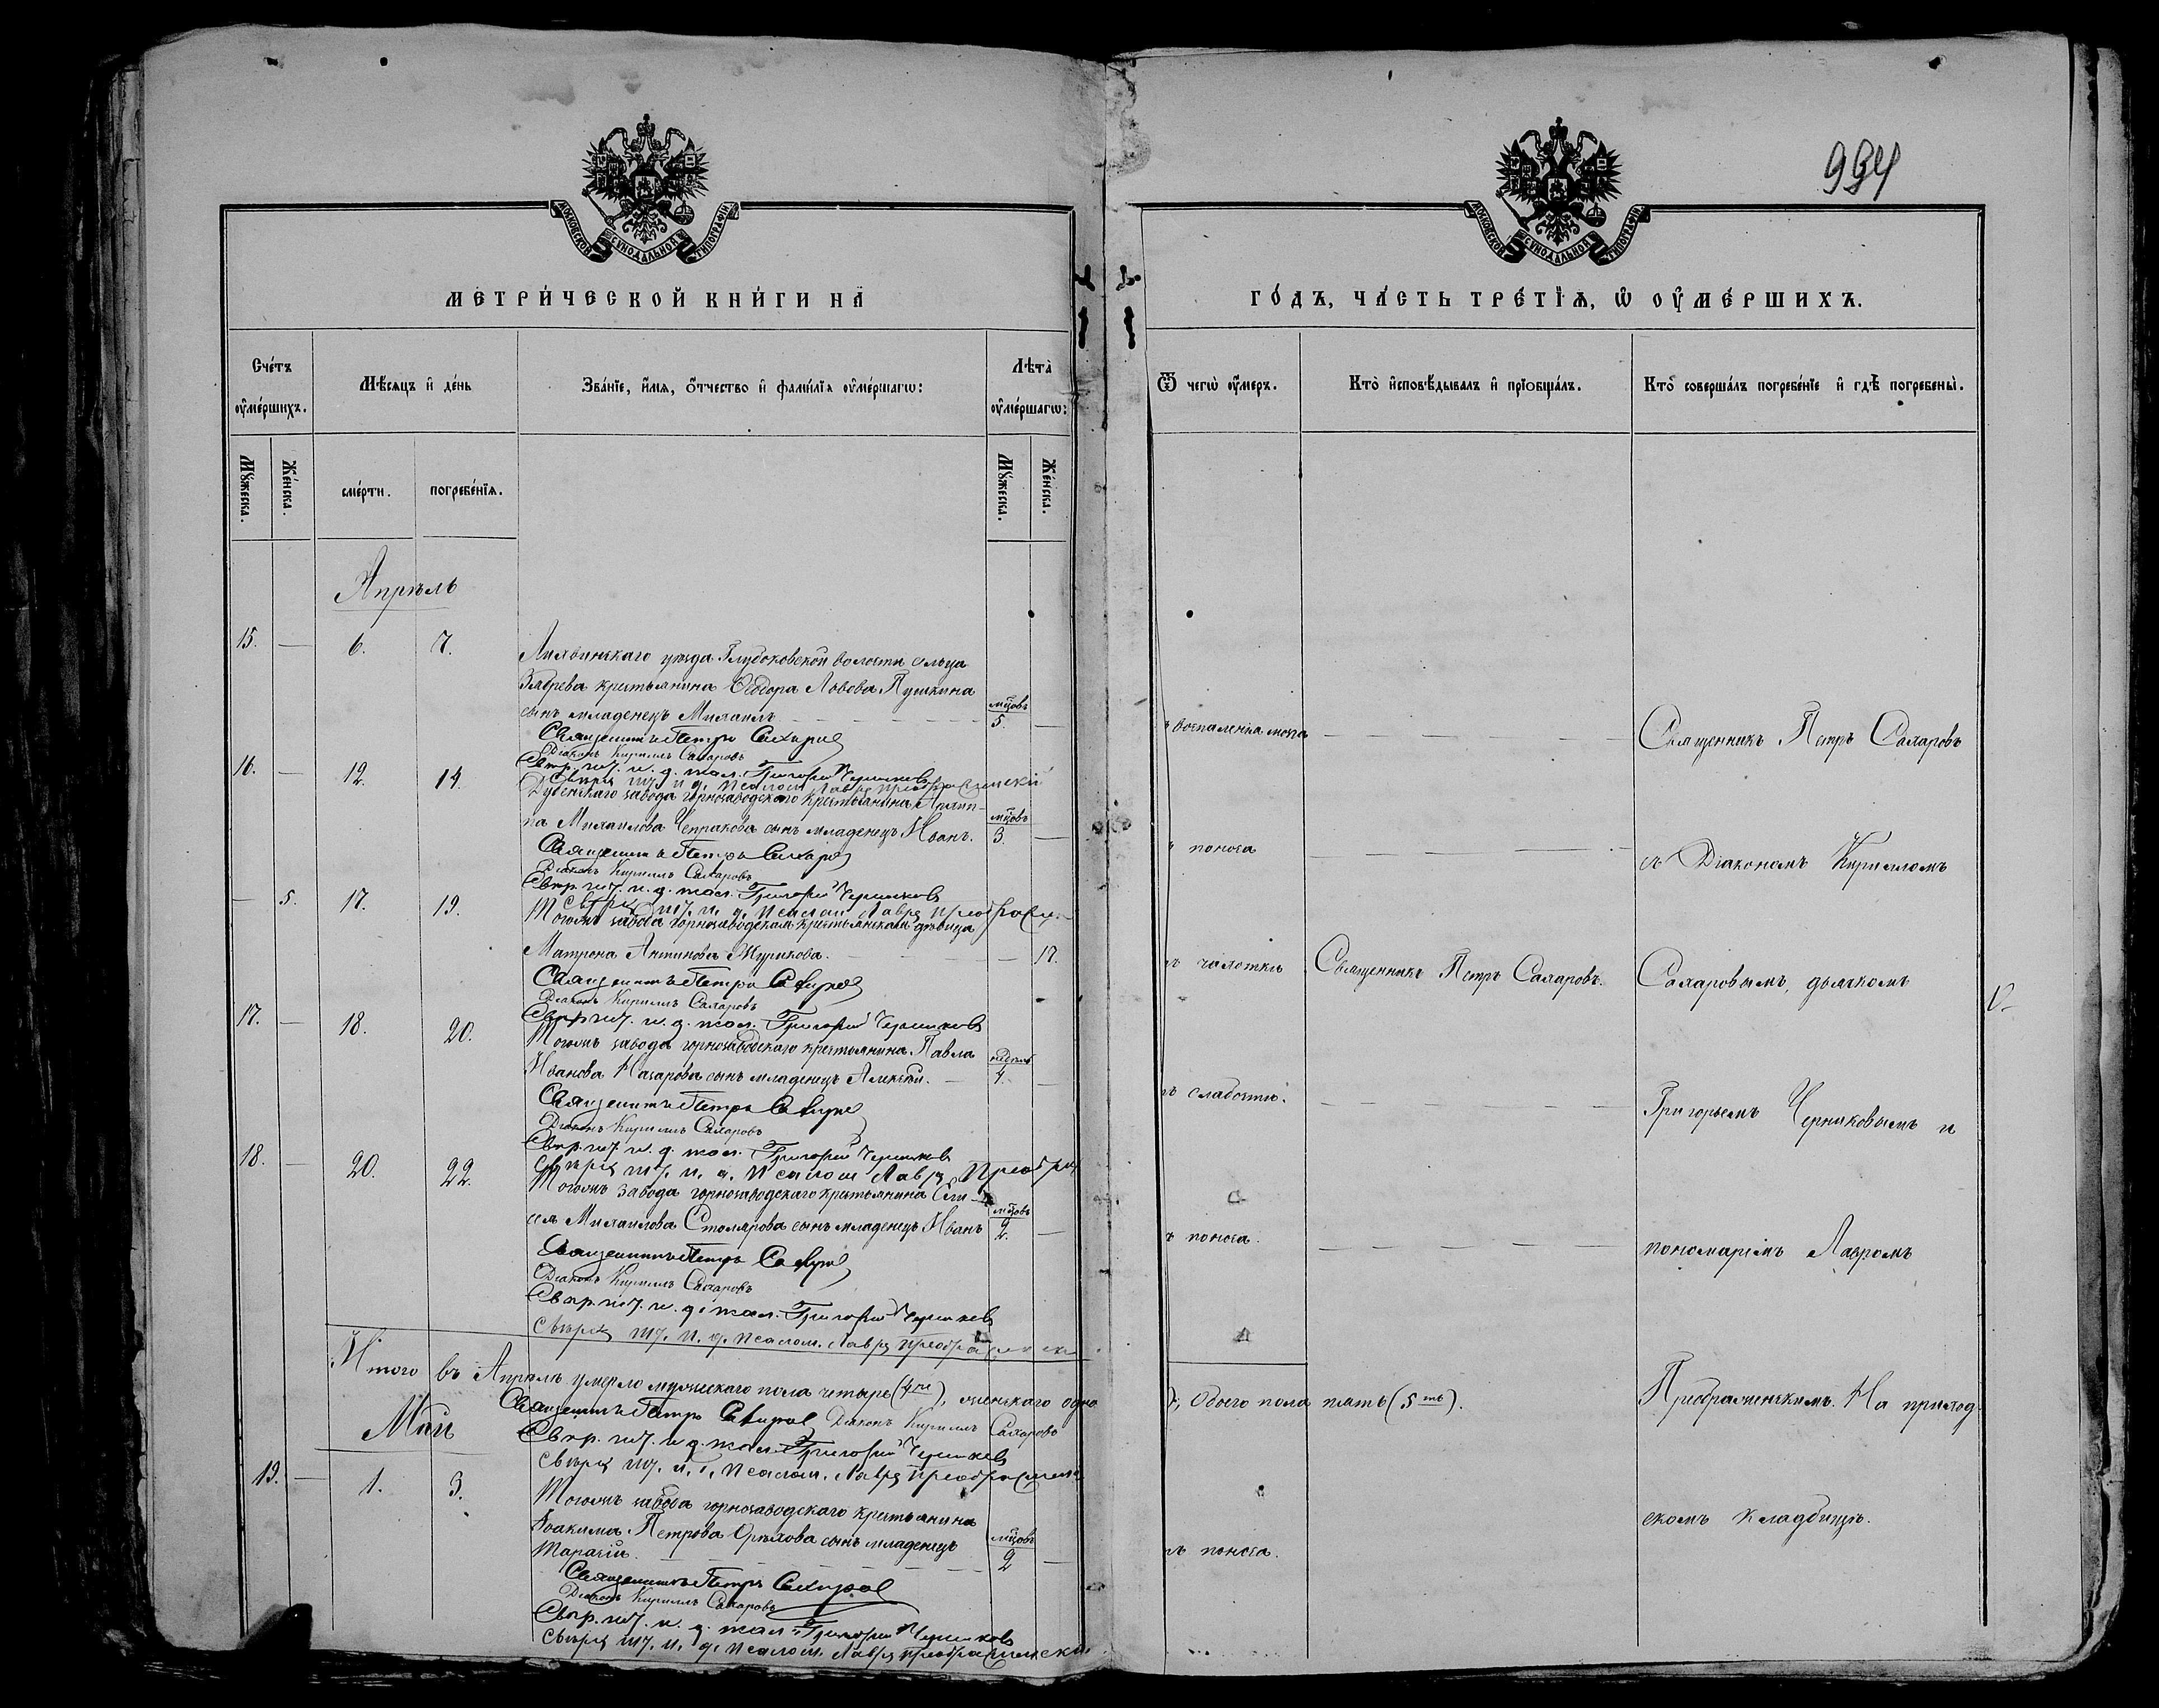 994
МОСКОВСКОЙ СУНОДАЛЬНОЙ ТИПОГРАФІИ
МЕТРИ́ЧЕСКОЙ КНИ́ГИ НА
Сче́тъ оумершихъ.
Мѣсяцъ и де́нь
Зва́нїе, и́мя, о́тчество и фами́лїя оуме́ршагѡ:
Лѣта̀ оуме́ршагѡ:
Мꙋжеска.
Же́нска.
сме́рти.
погребе́нїя.
Мꙋжеска.
Же́нска.
Апрѣль
15. — 6. 7. Лихвинскаго уѣзда Глубоковской волости сельца
Зябрева крестьянина Ѳеодора Львова Пушкина
сынъ младенецъ Михаилъ — мцовъ 5. —
Священникъ Петръ Сахаровъ
Діаконъ Кириллъ Сахаровъ
Григорій Черниковъ
16. — 12. 14. Дубенскаго завода горнозаводскаго крестьянина Филип-
па Михаилова Чепракова сынъ младенецъ Иванъ. мцовъ 3. —
Священникъ Петръ Сахаровъ
Діаконъ Кириллъ Сахаровъ
Григорій Черниковъ
— 5. 17. 19. Тогожъ завода горнозаводская крестьянская дѣвица
Матрона Антипова Журикова. — 17.
Священникъ Петръ Сахаровъ
Діаконъ Кириллъ Сахаровъ
Григорій Черниковъ
17. — 18. 20. Тогожъ завода горнозаводскаго крестьянина Павла
Иванова Назарова сынъ младенецъ Алексѣй. — недѣль 4. —
Священникъ Петръ Сахаровъ
Діаконъ Кириллъ Сахаровъ
Григорій Черниковъ
18. — 20. 22. Тогожъ завода горнозаводскаго крестьянина Ели-
сея Михаилова Столярова сынъ младенецъ Иванъ мцовъ 2. —
Священникъ Петръ Сахаровъ
Діаконъ Кириллъ Сахаровъ
Григорій Черниковъ
Итого въ Апрѣлѣ умерло мужескаго пола четыре (4ре), женскаго одна
Священникъ Петръ Сахаровъ Діаконъ Кириллъ Сахаровъ
Май
Григорій Черниковъ
19. — 1. 3. Тогожъ завода горнозаводскаго крестьянина
Іоакима Петрова Орѣхова сынъ младенецъ
Тарасій. — мцовъ 2 —
Священникъ Петръ Сахаровъ
Діаконъ Кириллъ Сахаровъ
Григорій Черниковъ
МОСКОВСКОЙ СУНОДАЛЬНОЙ ТИПОГРАФІИ
ГО́ДЪ, ЧА́СТЬ ТРЕ́ТЇѦ, Ѡ ОУМЕ́РШИХЪ.
Ѿ чегѡ̀ оу́меръ.
Кто̀ исповѣ́дывалъ и прїобща́лъ.
Кто̀ соверша́лъ погребе́нїе и гдѣ̀ погребены̀.
воспаленія мозга — Священникъ Петръ Сахаровъ
поноса — съ Діакономъ Кирилломъ
чахотки Священникъ Петръ Сахаровъ. Сахаровымъ, дьячкомъ
слабости. — Григорьемъ Черниковымъ и
поноса. — пономаремъ Лавромъ
Обоего пола пять (5ть). Преображенскимъ. На приход-
поноса. скомъ кладбищѣ.